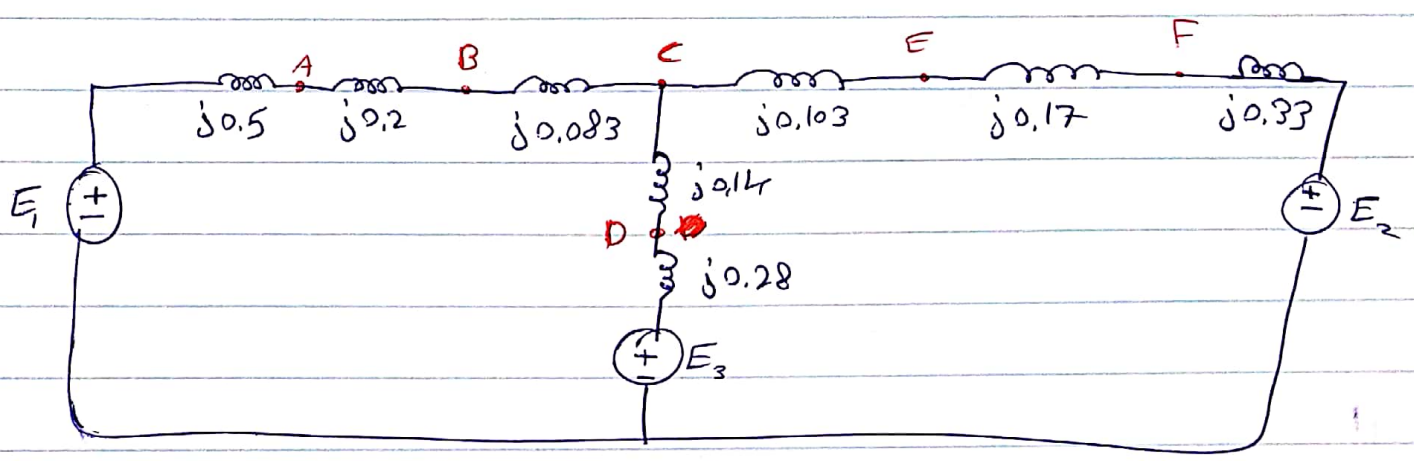 A B C E F
j0.5 j0.2 j0.083 j0.103 j0.17 j0.33
j0.14
E1 D E2
j0.28
E3